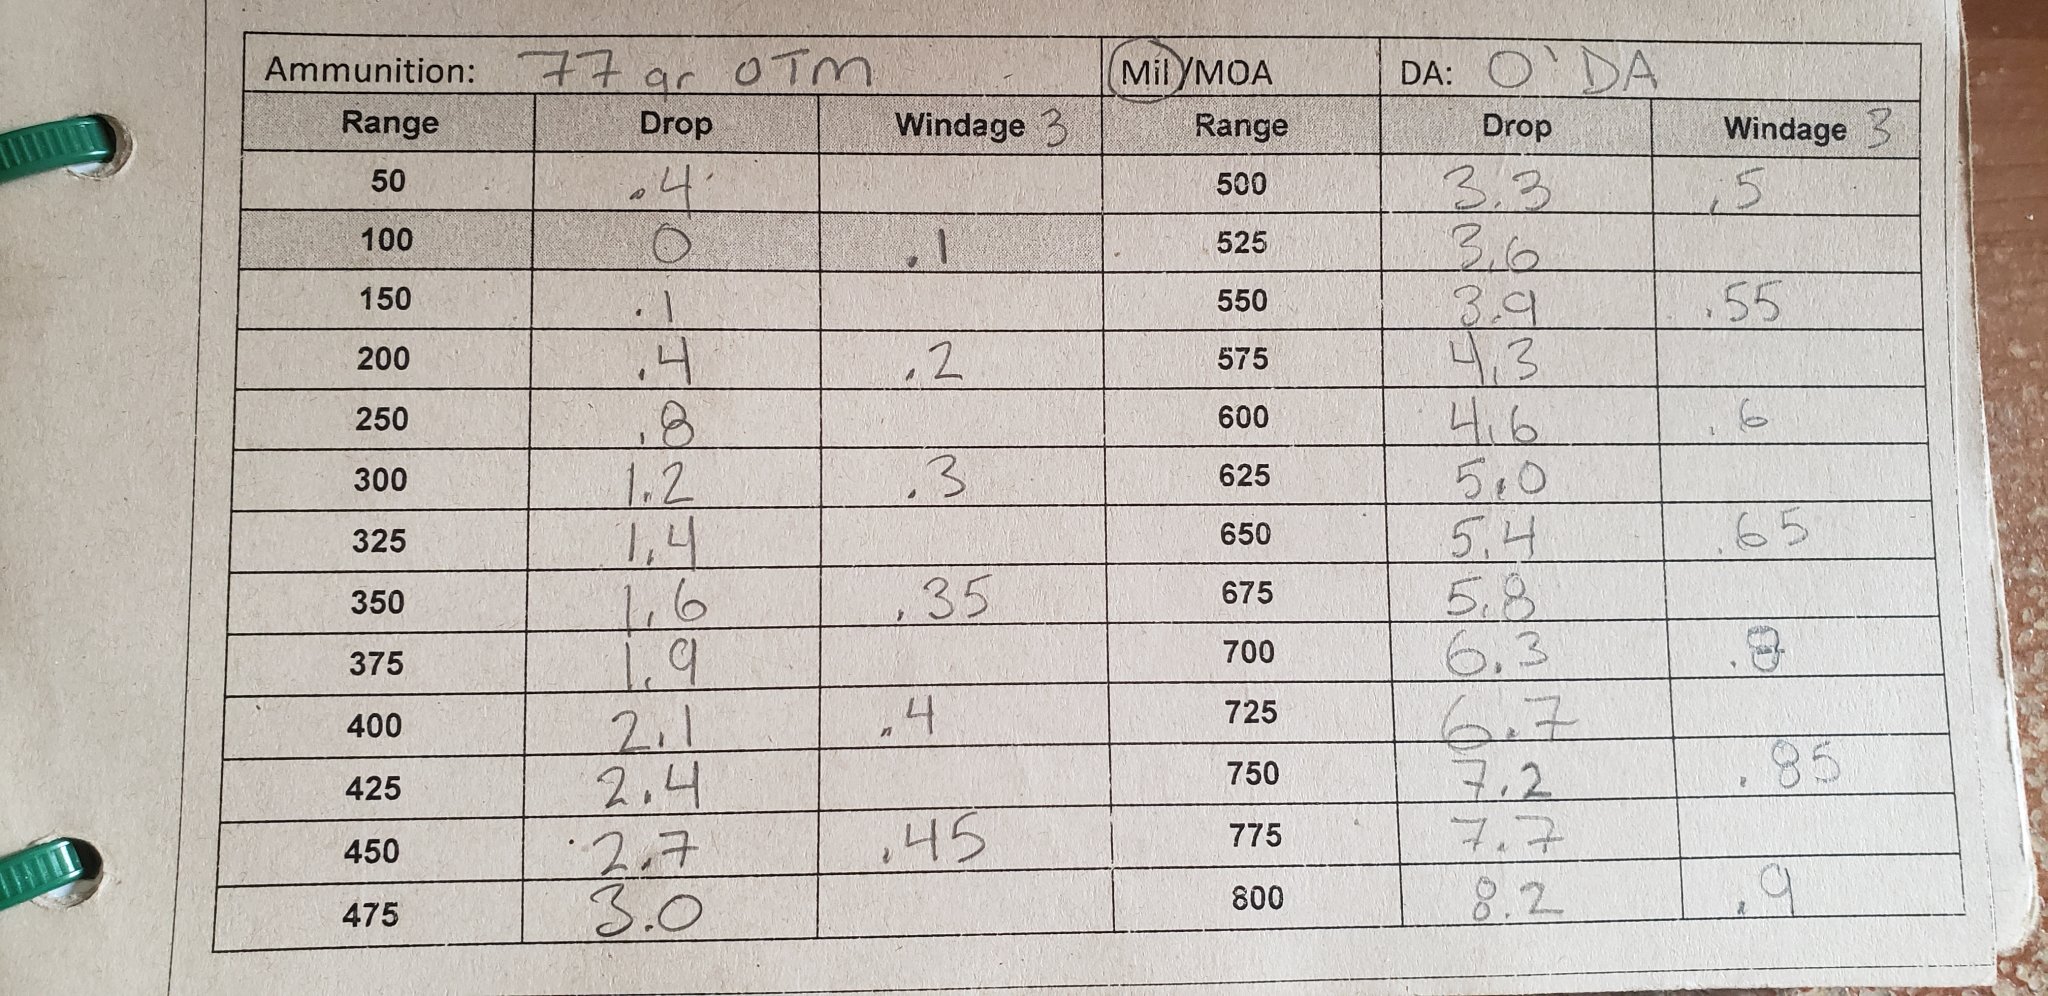 Ammunition: 77 gr OTM Mil/MOA DA: 0' DA
Range Drop Windage 3 Range Drop Windage 3
50 .4 500 3.3 .5
100 0 .1 525 3.6
150 .1 550 3.9 .55
200 .4 .2 575 4.3
250 .8 600 4.6 .6
300 1.2 .3 625 5.0
325 1.4 650 5.4 .65
350 1.6 .35 675 5.8
375 1.9 700 6.3 .8
400 2.1 .4 725 6.7
425 2.4 750 7.2 .85
450 2.7 .45 775 7.7
475 3.0 800 8.2 .9